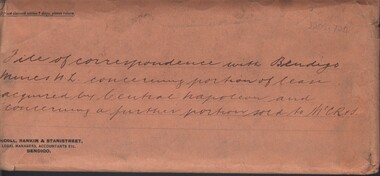 File of correspondence with Bendigo
Mines N.L. concerning portion of lease
acquired by Central Napoleon and
concerning a further portion sold to
RANKIN & STANISTREET,
LEGAL MANAGERS, ACCOUNTANTS Etc.
BENDIGO.